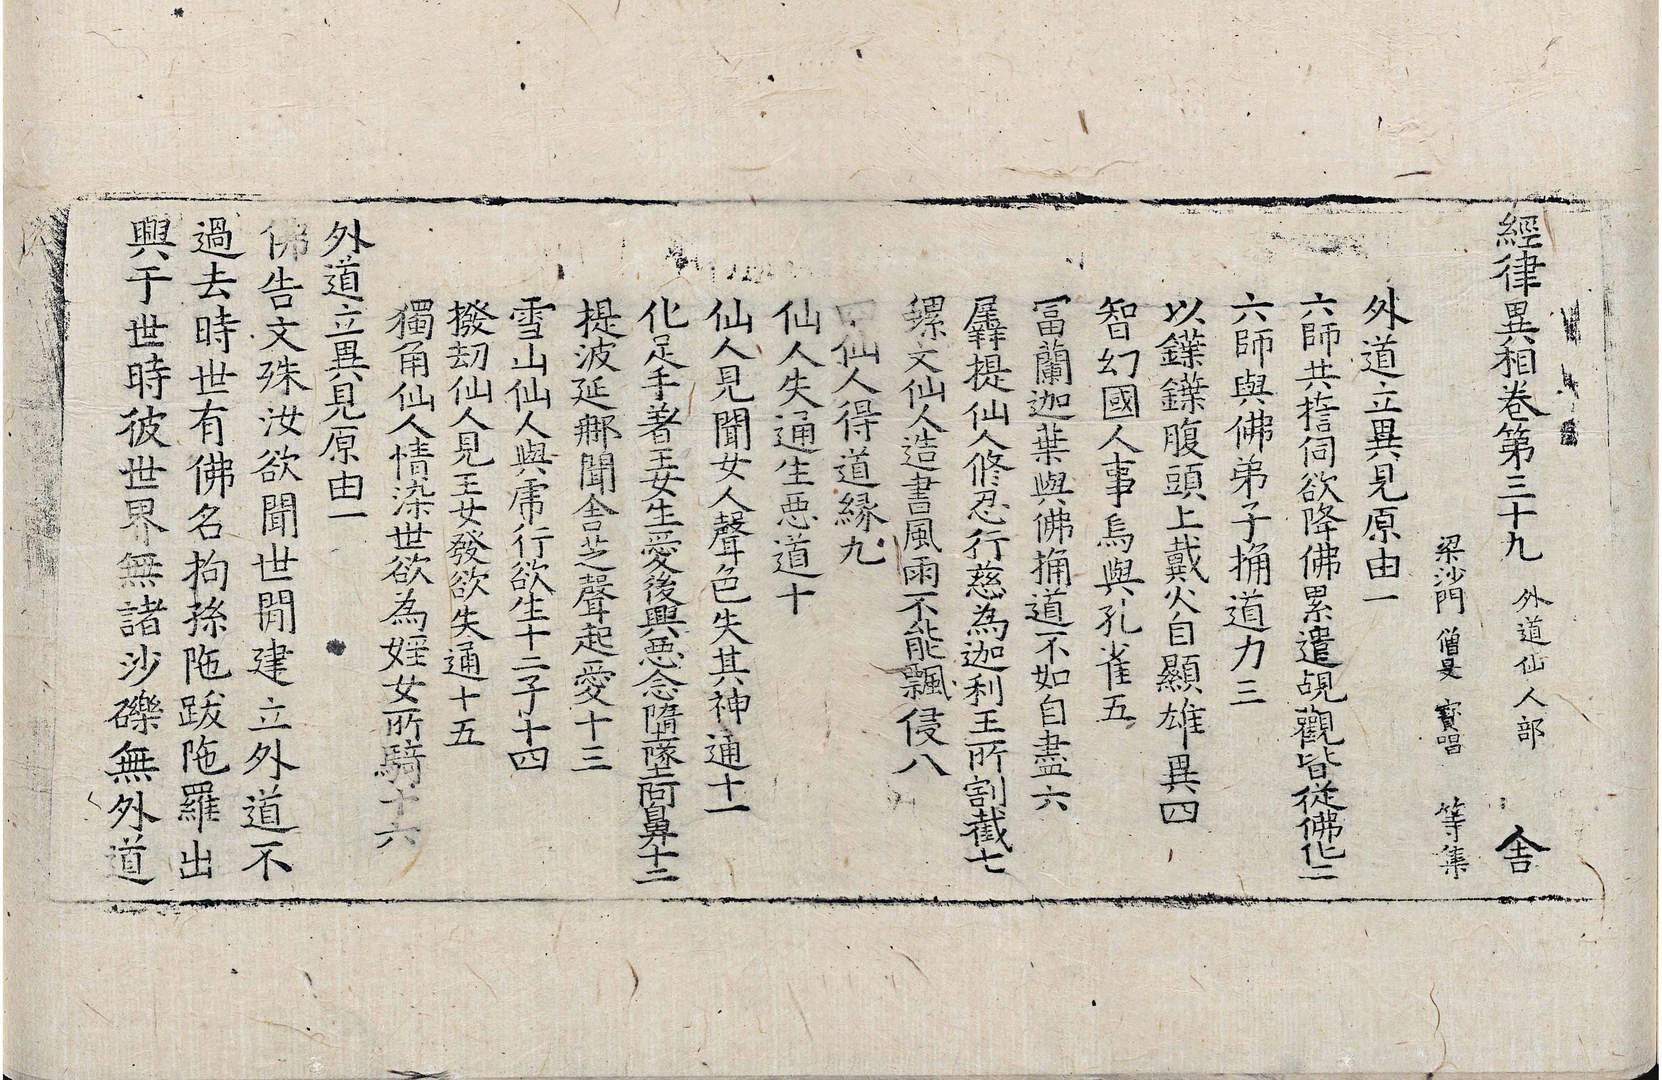 經律異相卷第三十九 外道仙人部 舍
梁沙門 僧旻 寶唱 等集
外道立異見原由一
六師共誓伺欲降佛累遣覘觀皆從佛化二
六師與佛弟子捔道力三
以鐷鐷腹頭上戴火自顯雄異四
智幻國人事烏與孔雀五
冨蘭迦葉與佛捔道不如自盡六
羼提仙人修忍行慈為迦利王所割截七
螺文仙人造書風雨不能飄侵八
四仙人得道緣九
仙人失通生惡道十
仙人見聞女人聲色失其神通十一
化足手著王女生愛後興惡念隨墜阿鼻十二
提波延那聞舍芝聲起愛十三
雪山仙人與虎行欲生十二子十四
撥劫仙人見王女發欲失通十五
獨角仙人情染世欲為婬女所騎十六
外道立異見原由一
佛告文殊汝欲聞世間建立外道不
過去時世有佛名拘孫陁跋陁羅出
興于世時彼世界無諸沙礫無外道